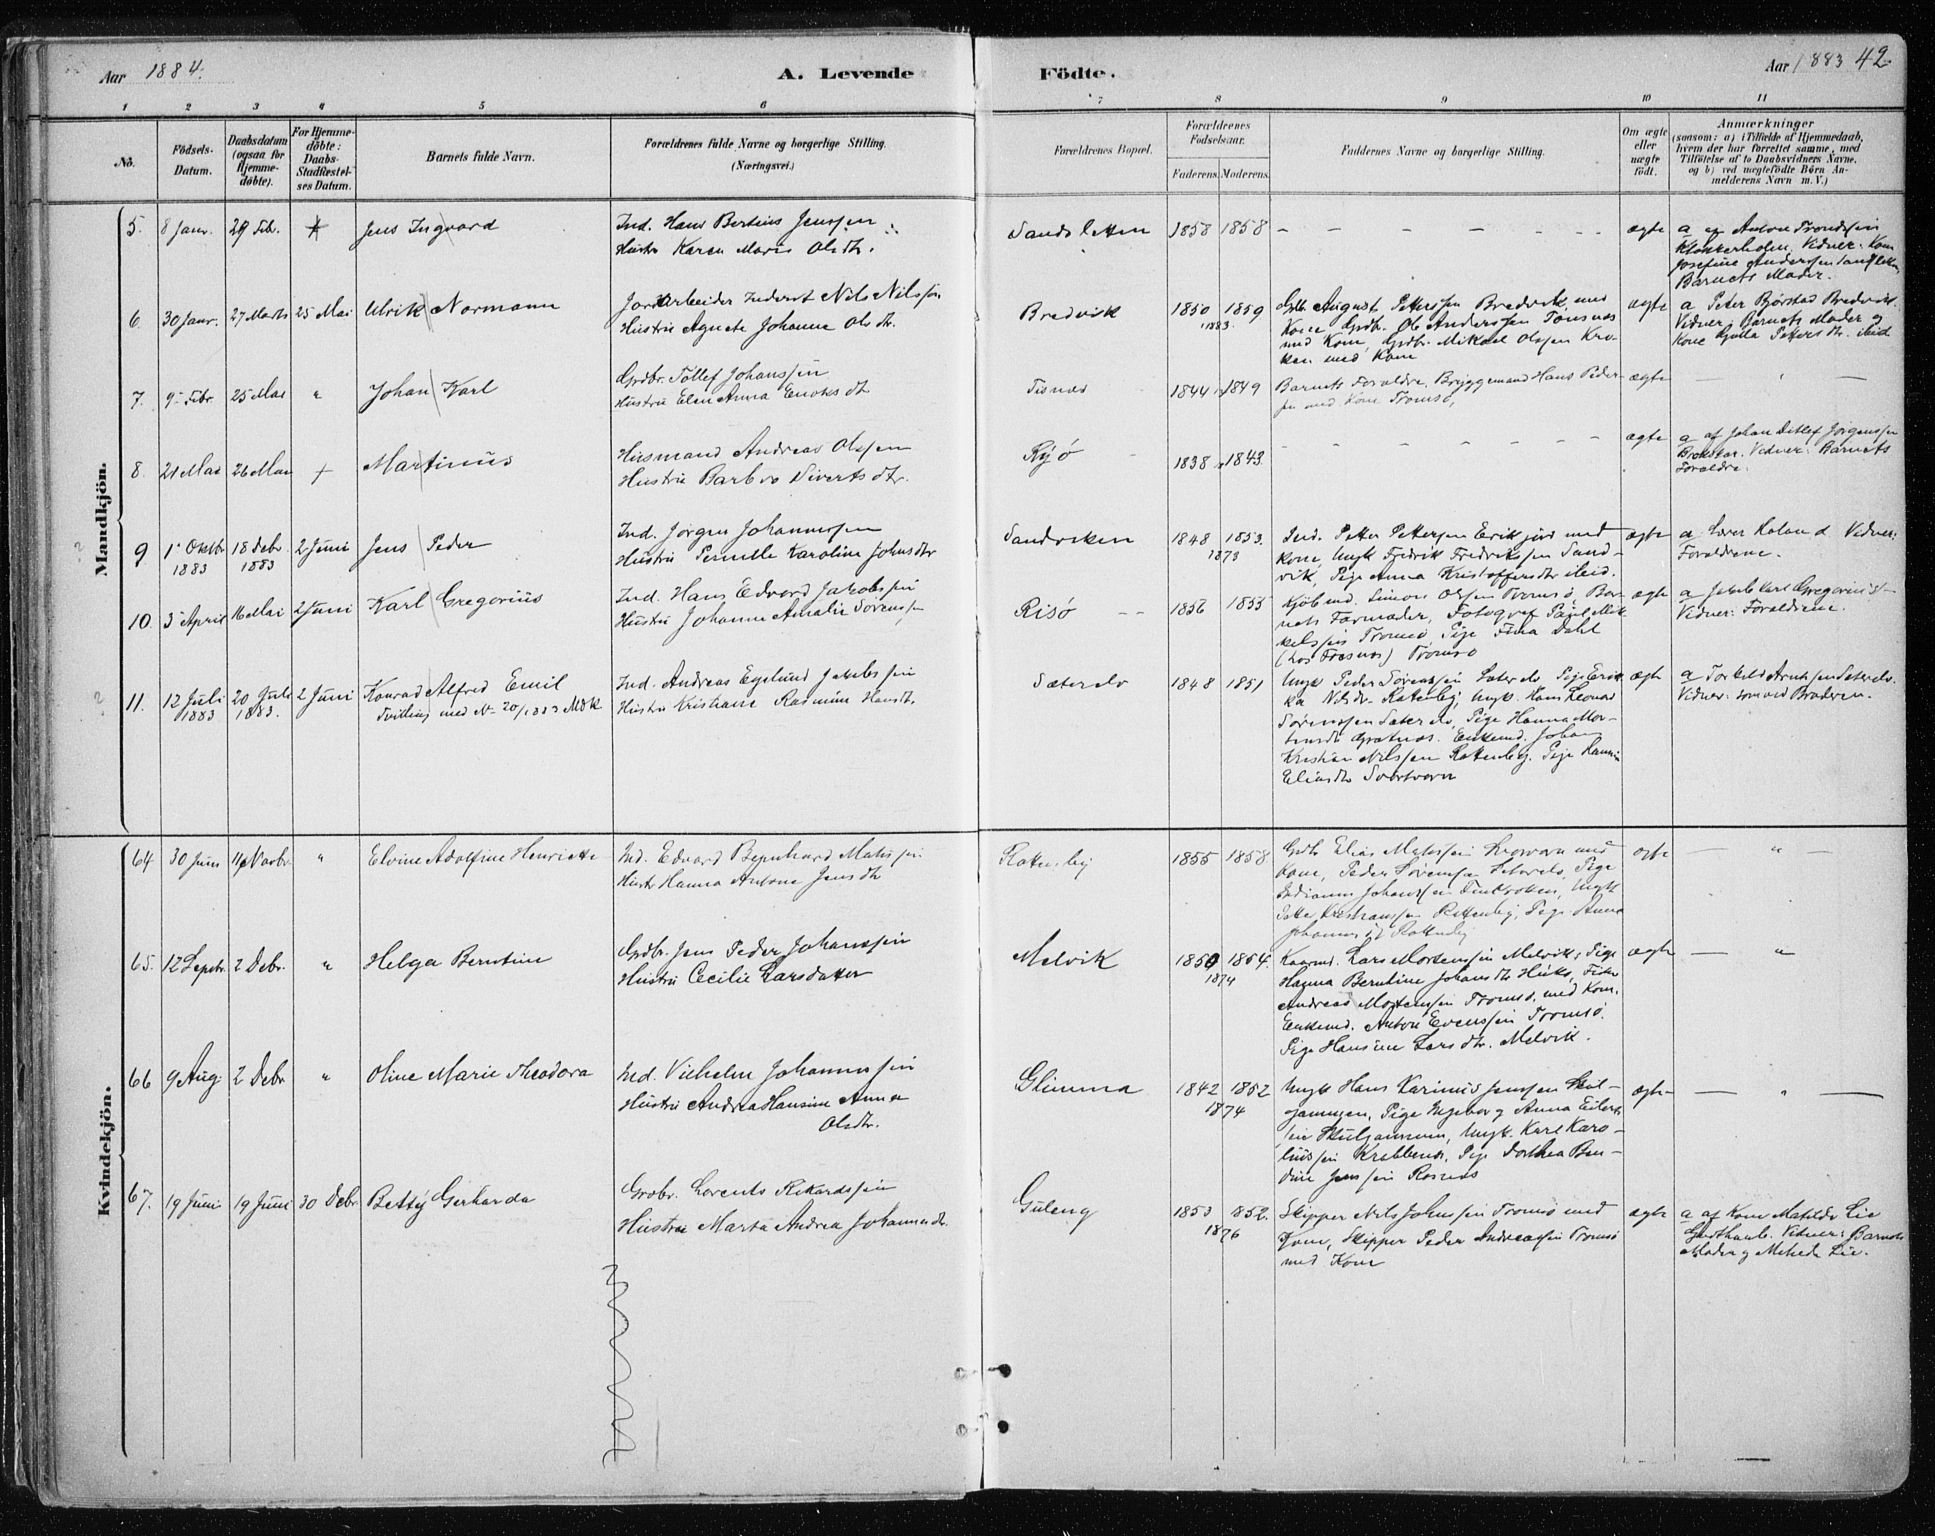 Aar 1884.
A. Levende
Födte.
Aar 1883 42
1 2 3 4 5 6 7 8 9 10 11
No.
Födsels-
Datum.
Daabsdatum
(ogsaa for
Hjemme-
döbte).
For Hjemme-
döbte:
Daabs-
Stadfæstel-
ses Datum.
Barnets fulde Navn.
Forældrenes fulde Navne og borgerlige Stilling.
(Næringsvei.)
Forældrenes Bopæl.
Forældrenes
Födselsaar.
Faderens.
Moderens.
Faddernes Navne og borgerlige Stilling.
Om ægte
eller
uægte
födt.
Anmærkninger
(saasom: a) i Tilfælde af Hjemmedaab,
hvem der har forrettet samme, med
Tilföielse af to Daabsvidners Navne,
og b) ved uægtefödte Börn An-
melderens Navn m. V.)
Mandkjön.
5. 8 Janr. 29 Febr. Jens Ingvard
Ind. Hans Bertius Jenssen
Hustr Karen Marie Olsdtr.
Sandsletten 1858 1858 – – – – – – – ægte
a af Anton Trondssen
Klokkerholm, Vidner: Kone
Josefine Anderssen
Barnets Moder.
6. 30 Janr. 27 Marts 25 Mai Ulrik Normann
Jordarbeider Inderst Nils Nilssen
Hustru Agnete Johanna Olsdtr.
Bredvik 1850 1859
1883.
Gdb. August Pettersen Bredvik med
Kone Grdbr. Ole Anderssen Tönsnes
med Kone, Grdbr. Mikael Olssen Kro-
ken med Kone
ægte
a Peter Bjørstad Bredvik.
Vidner: Barnets Moder og
Kone Gjula Petersdtr. ibid
7. 9 Febr. 25 Mai " Johan Karl
Grdbr. Tollef Johanssen
Hustru Elen Anna Enoksdt
Tisnes 1844 1849
Barnets Forældre, Bryggemand Hans Peder-
sen med Kone Tromsø,
ægte – " –
8. 21 Mai 26 Mai + Martinus
Husmand Andreas Olssen
Hustru Barbro Sivertsdtr.
Ryø 1838 1843. – – – – – – – ægte
a af Johan Detlef Jørgenssen
Vidner: Barnets
Forældre.
9 1 Oktbr 18 Debr. 2 Juni Jens Peder
1883 1883
Ind. Jörgen Johannessen
Hustru Pernille Karoline Johnsdtr
Sandviken 1848 1853.
1873
Ind. Petter Pettersen Eriksjord med
kone, Ungk Fredrik Fredrikssen Sand-
vik, Pige Anna Kristoffersdtr ibid.
ægte
a Lærer Roland Vidner:
Forældrene.
10. 3 April 16 Mai 2 Juni Karl Gregorius
Ind. Hans Edvard Jakobssen
Hustru Johanne Amalie Sörenssen
Risø – – 1856 1855
Kjöbmd. Simon Olssen Tromsø Bar-
nets Farmoder, Fotograf Paul Mik-
kelssen Tromsø, Pige Fina Dahl
(hos Fosnes) Tromsø
ægte
a Jakob Karl Gregorius
Vidner: Forældrene.
11. 12 Juli 20 Juli 2 Juni Konrad Alfred Emil
1883 1883. Tvilling med N. 20/1883 Mdk
Ind. Andreas Egelund Jakobssen
Hustru Kristiane Rasmine Hansdt.
Sæterelv 1848 1851
Ungk Peder Sörenssen Sæterelv Pige Erik-
ka Nilsdr. Rottenby, Ungk. Hans Leonard
Sörenssen Sæterelv, Pige Hanna Mor-
tensdt Grøtnes. Enkemd. Johan
Kristian Nilssen Rottenby. Pige Hanna
Eliasdtr Svartvavn
ægte
a Torkild Arntssen Sæterelv.
Vidner: som ved Broderen.
Kvindekjön.
64 30 Juni 11 Novbr " Elvine Adolfine Henriette
Ind. Edvard Bernhard Matissen
Hustr Hanna Antone Jensdtr
Rottenby 1855 1858
Grdb. Elias Matssen med
Kone, Peder Sörenssen Sæterelv, Pige
Indianna Johanssen Finkroken, Ungk
Petter Kristianssen Rottenby, Pige Anna
Johannesdt Rottenby
ægte " –
65. 12 Septr. 2 Debr. " Helga Berntine
Grdbr. Jens Peder Johanssen
Hustru Cecilie Larsdatter
Melvik 1850 1854.
1874
Kaarmd. Lars Mortenssen Melvik, Pige
Hanna Berntine Johansdtr ibid, Fisker
Andreas Mortenssen Tromsø, med Kone.
Enkemd. Anton Evenssen Tromsø.
Pige Hansine Larsdtr. Melvik.
ægte – "
66 9 Aug. 2 Debr " Oline Marie Theodora
Ind. Vilhelm Johannessen
Hustru Andrea Hansine Anna
Olsdtr.
Glimma 1842 1852
1874
Ungk Hans Karinius Jenssen Skul-
gammen, Pige Ingeborg Anna Eilert-
sen Skulgammen, Ungk. Karl Karo-
liussen Krabbenes, Pige Dorthea Ben-
dine Jenssen Rosnes
ægte – " –
67. 19 Juni 19 Juni 30 Debr. Betty Gerharda
Grdbr. Lorents Rikardssen
Hustru Marta Andrea Johannesdtr.
Guleng 1853 1852.
1876
Skipper Nils Johnssen Tromsø med
Kone, Skipper Peder Andreassen Tromsø
med Kone
ægte
a af Kone Matilde Lie
Vidner: Barnets
Moder og Lie.